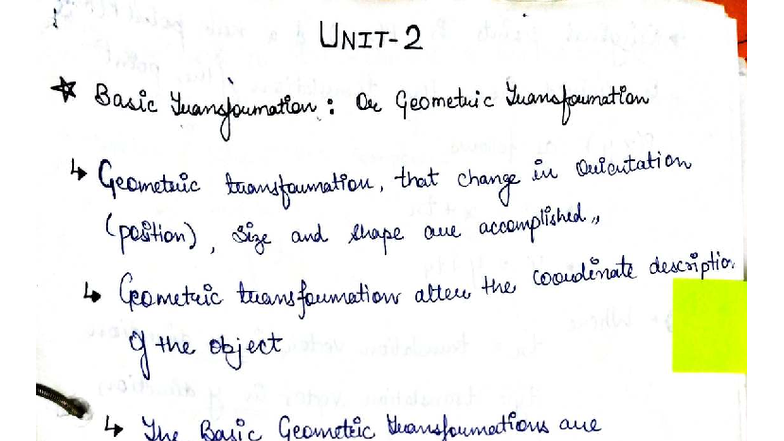 UNIT-2
☆ Basic Transformation : Or Geometric Transformation
↳ Geometric transformation, that change in Orientation
(position), size and shape are accomplished,,
↳ Geometric transformation alter the coordinate descriptio
of the object
↳ The Basic Geometric transformations are